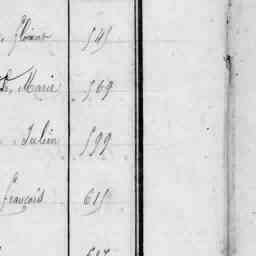 Florent 541
Marie 569
Julien 599
françois 615